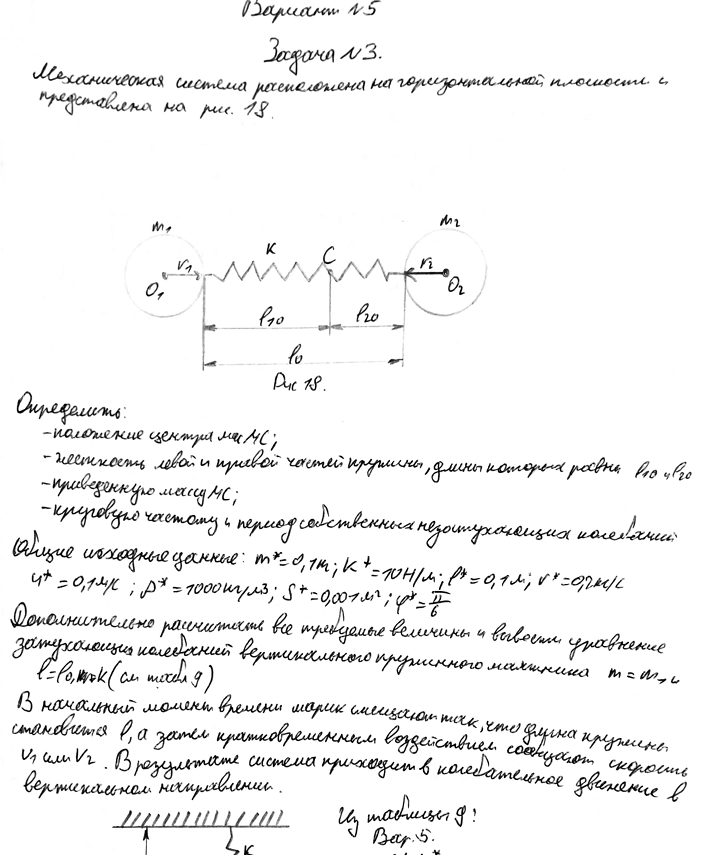 Вариант №5
Задача №3.
Механическая система расположена на горизонтальной плоскости и
представлена на рис. 18.
m₁
m₂
K
C
V₁
V₂
O₁
O₂
l₁₀
l₂₀
l₀
Рис 18.
Определить:
-положение центра масс МС;
-жесткость левой и правой частей пружины, длины которых равны l₁₀ и l₂₀
-приведенную массу МС;
-круговую частоту и период собственных незатухающих колебаний
Общие исходные данные: m*=0,1 ; K*=10Н/м; l*=0,1м; V*=0,2м/с
u*=0,1м/с ; ρ*=1000кг/м3; S*=0,001м²; φ*=π/6
Дополнительно рассчитать все требуемые величины и вывести уравнение
затухающих колебаний вертикального пружинного маятника m=m₁ и
l=l₀, K (см табл 9)
В начальный момент времени шарик смещают так, что длина пружины
становится l, а затем кратковременным воздействием сообщают скорость
V₁ или V₂. В результате система приходит в колебательное движение в
вертикальном направлении.
Из таблицы 9:
Вар. 5.
K